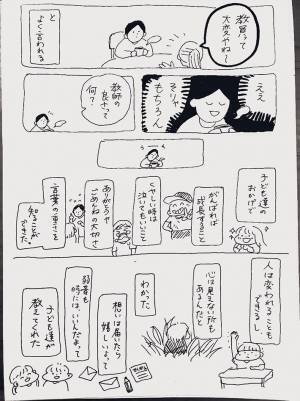 教育って
大変やね〜
と
よく言われる
ええ
そりゃ
もちろん
教師の
良さって
何？
うーん
子ども達の
おかげで
がんばれば
成長すること
くやしい時は
泣いてもいいこと
ありがとうや
ごめんねの大切さ
言葉の重さを
知ることが
できた。
人は変われることも
できるし、
心は見えない所も
あるんだと
わかった
想いは届いたら
嬉しいよって
弱音も
時には、いいんだよって
子ども達が
教えてくれた